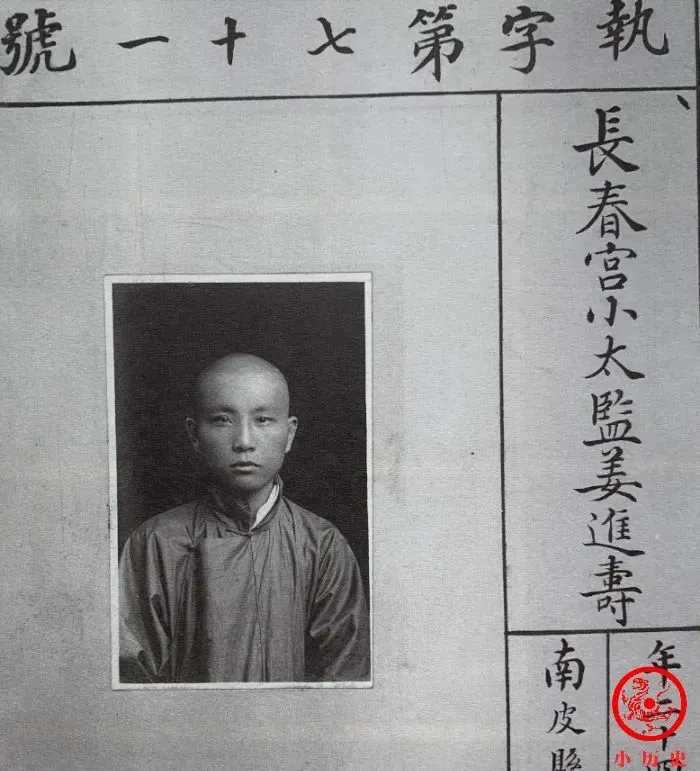 執字第七十一號
長春宮小太監姜進壽
年二十
南皮縣
小历史